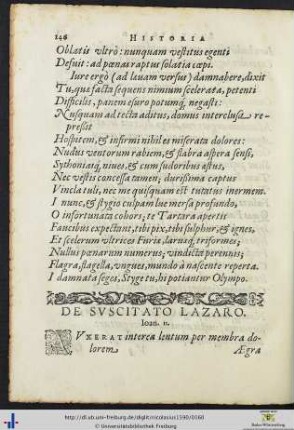 146 HISTORIA
Oblatis vltrò: nunquam vestitus egenti
Defuit: ad pœnas raptus solatia cœpi.
Iure ergò (ad lævam versus) damnabere, dixit
Tu, quæ facta sequens nimium scelerata, petenti
Difficilis, panem esuro potumq́; negasti:
Nusquam ad tecta aditus, domus interclusa re-
pressit
Hospitem, & infirmi nihil es miserata dolores:
Nudus ventorum rabiem, & flabra aspera sensi,
Sythoniasq́; niues, & cum sudoribus æstus,
Nec vestis concessa tamen; durissima captus
Vincla tuli, nec me quisquam est tutatus inermem.
I nunc, & stygio culpam lue mersa profundo,
O infortunata cohors; te Tartara apertis
Faucibus expectant, tibi pix, tibi sulphur, & ignes,
Et scelerum vltrices Furiæ, laruæq́; triformes;
Nullus pœnarum numerus; vindicta perennis;
Flagra, flagella, vngues, mundo à nascente reperta.
I damnata seges, Styge tu, hi potiantur Olympo.
DE SVSCITATO LAZARO.
Ioan. 11.
VXERAT interea lentum per membra do-
lorem Ægra
http://dl.ub.uni-freiburg.de/diglit/nicolosius1590/0160
© Universitätsbibliothek Freiburg